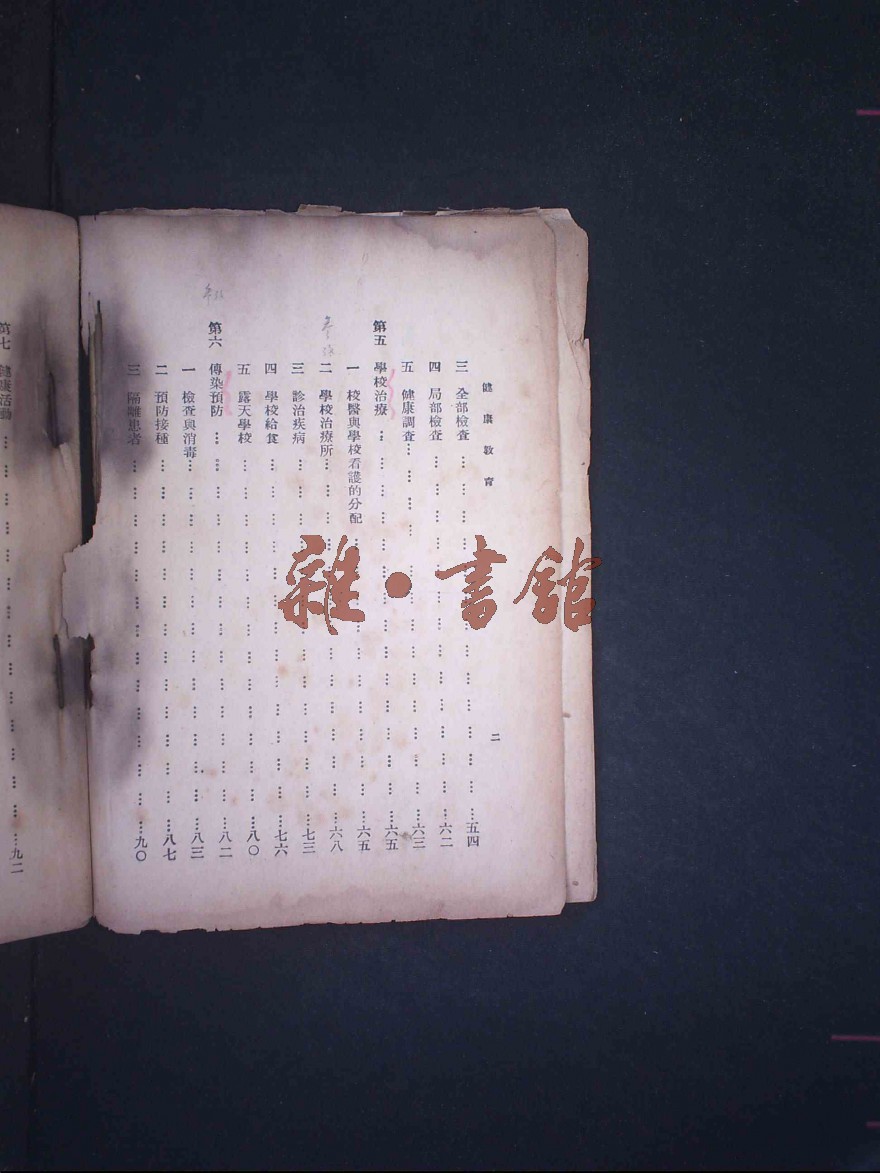 健康教育 二
三 全部檢查……五四
四 局部檢查……六二
五 健康調查……六三
第五 學校治療……六五
一 校醫與學校看護的分配……六五
二 學校治療所……六八
三 診治疾病……七三
四 學校給食……七六
五 露天學校……八〇
第六 傳染預防……八二
一 檢查與消毒……八三
二 預防接種……八七
三 隔離患者……九〇
第七 健康活動……九二
雜·書館